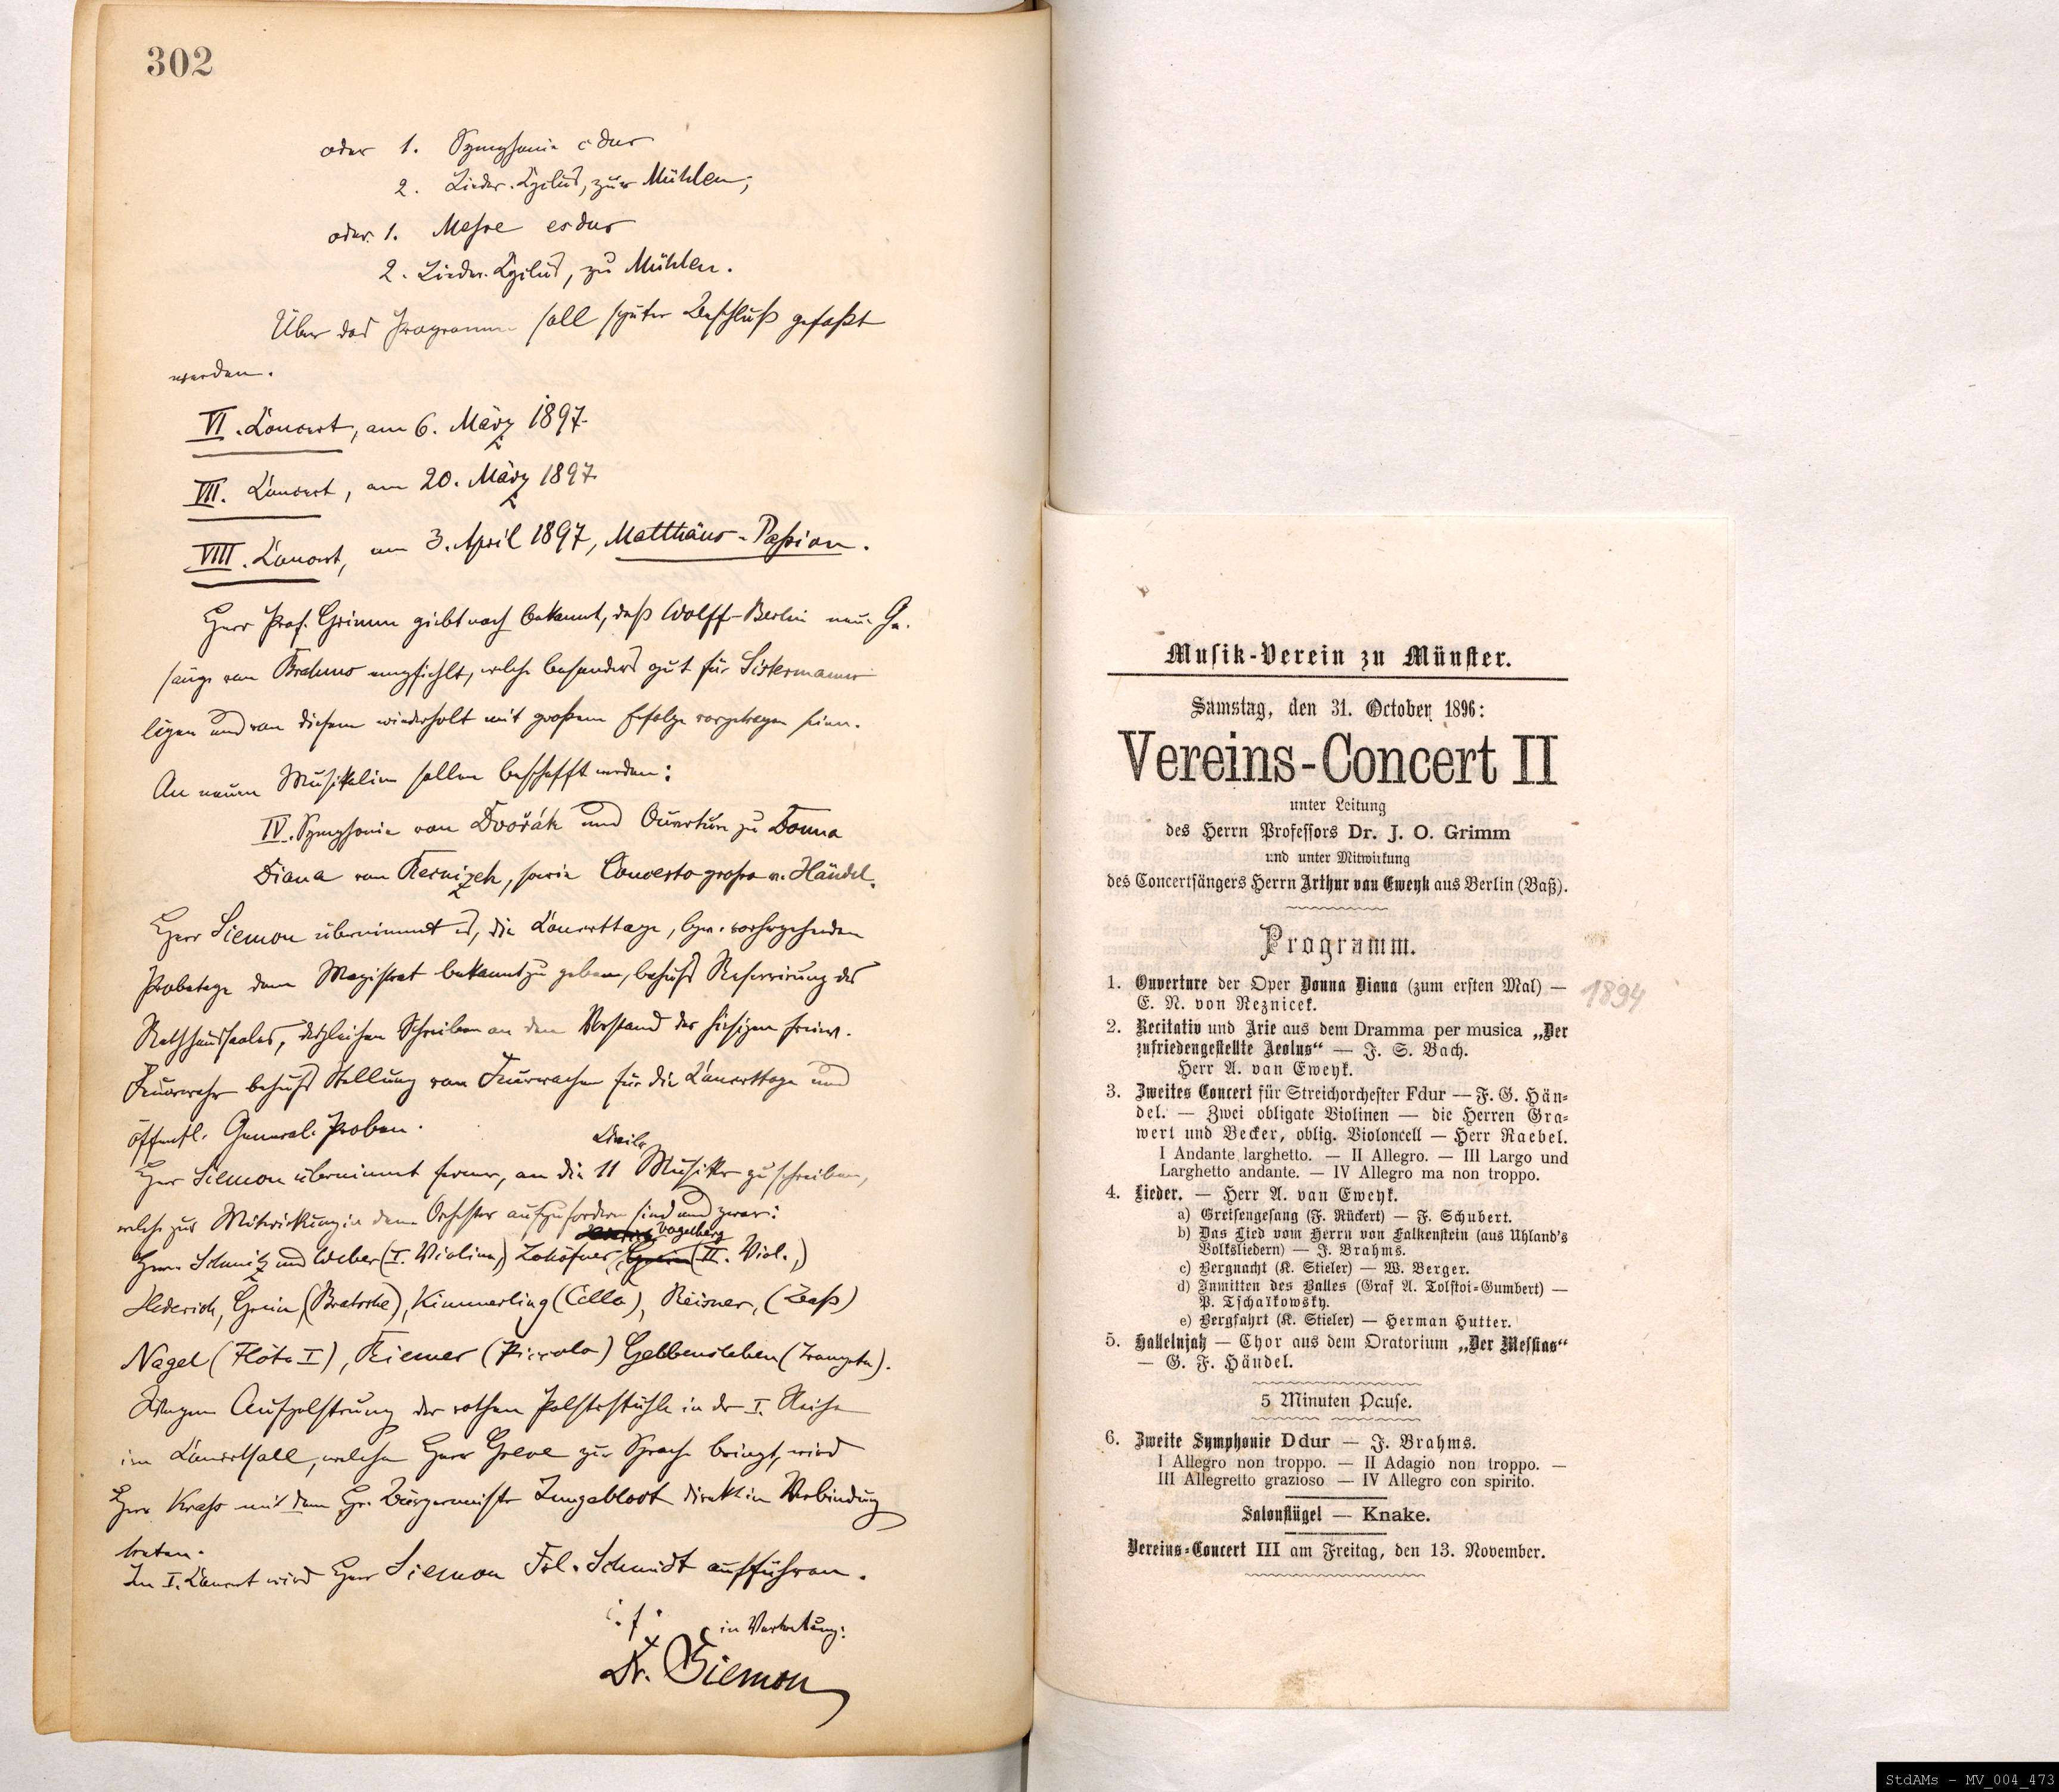 302
oder 1. Symphonie c dur
2. Lieder-Cyclus, zur Mühlen;
oder 1. Messe es dur
2. Lieder-Cyclus, zu Mühlen.
Über das Programm soll später Beschluß gefaßt
werden.
VI. Concert, am 6. März 1897.
VII. Concert, am 20. März 1897.
VIII. Concert, am 3. April 1897, Matthäus-Passion.
Herr Prof. Grimm giebt noch bekannt, daß Wolff-Berlin neue Ge-
sänge von Brahms empfiehlt, welche besonders gut für Sistermans
liegen und von diesem wiederholt mit großem Erfolge vorgetragen seien.
An neuen Musikalien sollen beschafft werden:
IV. Symphonie von Dvořák und Ouverture zu Donna
Diana von Resnizek, sowie Concerto grosso v. Händel.
Herr Siemon übernimmt es, die Concerttage, bzw. vorhergehenden
Probetage dem Magistrat bekannt zu geben, behufs Reservirung des
Rathhaussaales, desgleichen Schreiben an den Vorstand der hiesigen freiw.
Feuerwehr behufs Stellung von Feuerwachen für die Concerttage und
öffentl. General-Proben.
Civil-
Herr Siemon übernimmt ferner, an die 11 Musiker zu schreiben,
welche zur Mitwirkung in dem Orchester aufzufordern sind und zwar:
Vogelberg
Herrn Schmitz und Weber (I. Violine,) Zohöfner, Grein (II. Viol.,)
Hederich, Grein, (Bratsche), Kimmerling (Cello), Reisner, (Baß)
Nagel (Flöte I), Riemer (Piccolo) Gebbensleben (Trompete).
Wegen Aufpolsterung der rothen Polsterstühle in der I. Reihe
im Concertsaal, welche Herr Greve zur Sprache bringt, wird
Herr Krass mit dem Hr. Bürgermeister Jungeblodt direkt in Verbindung
treten.
Im I. Concert wird Herr Siemon Frl. Schmidt aufführen.
in Vertretung:
Dr. Siemon
Musik-Verein zu Münster.
Samstag, den 31. October 1896:
Vereins-Concert II
unter Leitung
des Herrn Professors Dr. J. O. Grimm
und unter Mitwirkung
des Concertsängers Herrn Arthur van Eweyk aus Berlin (Baß).
Programm.
1. Ouverture der Oper Donna Diana (zum ersten Mal) — 1894
E. N. von Reznicek.
2. Recitativ und Arie aus dem Dramma per musica „Der
zufriedengestellte Aeolus“ — J. S. Bach.
Herr A. van Eweyk.
3. Zweites Concert für Streichorchester Fdur — F. G. Hän-
del. — Zwei obligate Violinen — die Herren Gra-
wert und Becker, oblig. Violoncell — Herr Raebel.
I Andante larghetto. — II Allegro. — III Largo und
Larghetto andante. — IV Allegro ma non troppo.
4. Lieder. — Herr A. van Eweyk.
a) Greisengesang (F. Rückert) — F. Schubert.
b) Das Lied vom Herrn von Falkenstein (aus Uhland's
Volksliedern) — J. Brahms.
c) Bergnacht (K. Stieler) — W. Berger.
d) Inmitten des Balles (Graf A. Tolstoi-Gumbert) —
P. Tschaïkowsky.
e) Bergfahrt (K. Stieler) — Herman Hutter.
5. Hallelujah — Chor aus dem Oratorium „Der Messias“
— G. F. Händel.
5 Minuten Pause.
6. Zweite Symphonie Ddur — J. Brahms.
I Allegro non troppo. — II Adagio non troppo. —
III Allegretto grazioso — IV Allegro con spirito.
Salonflügel — Knake.
Vereins-Concert III am Freitag, den 13. November.
StdAMs - MV_004_473